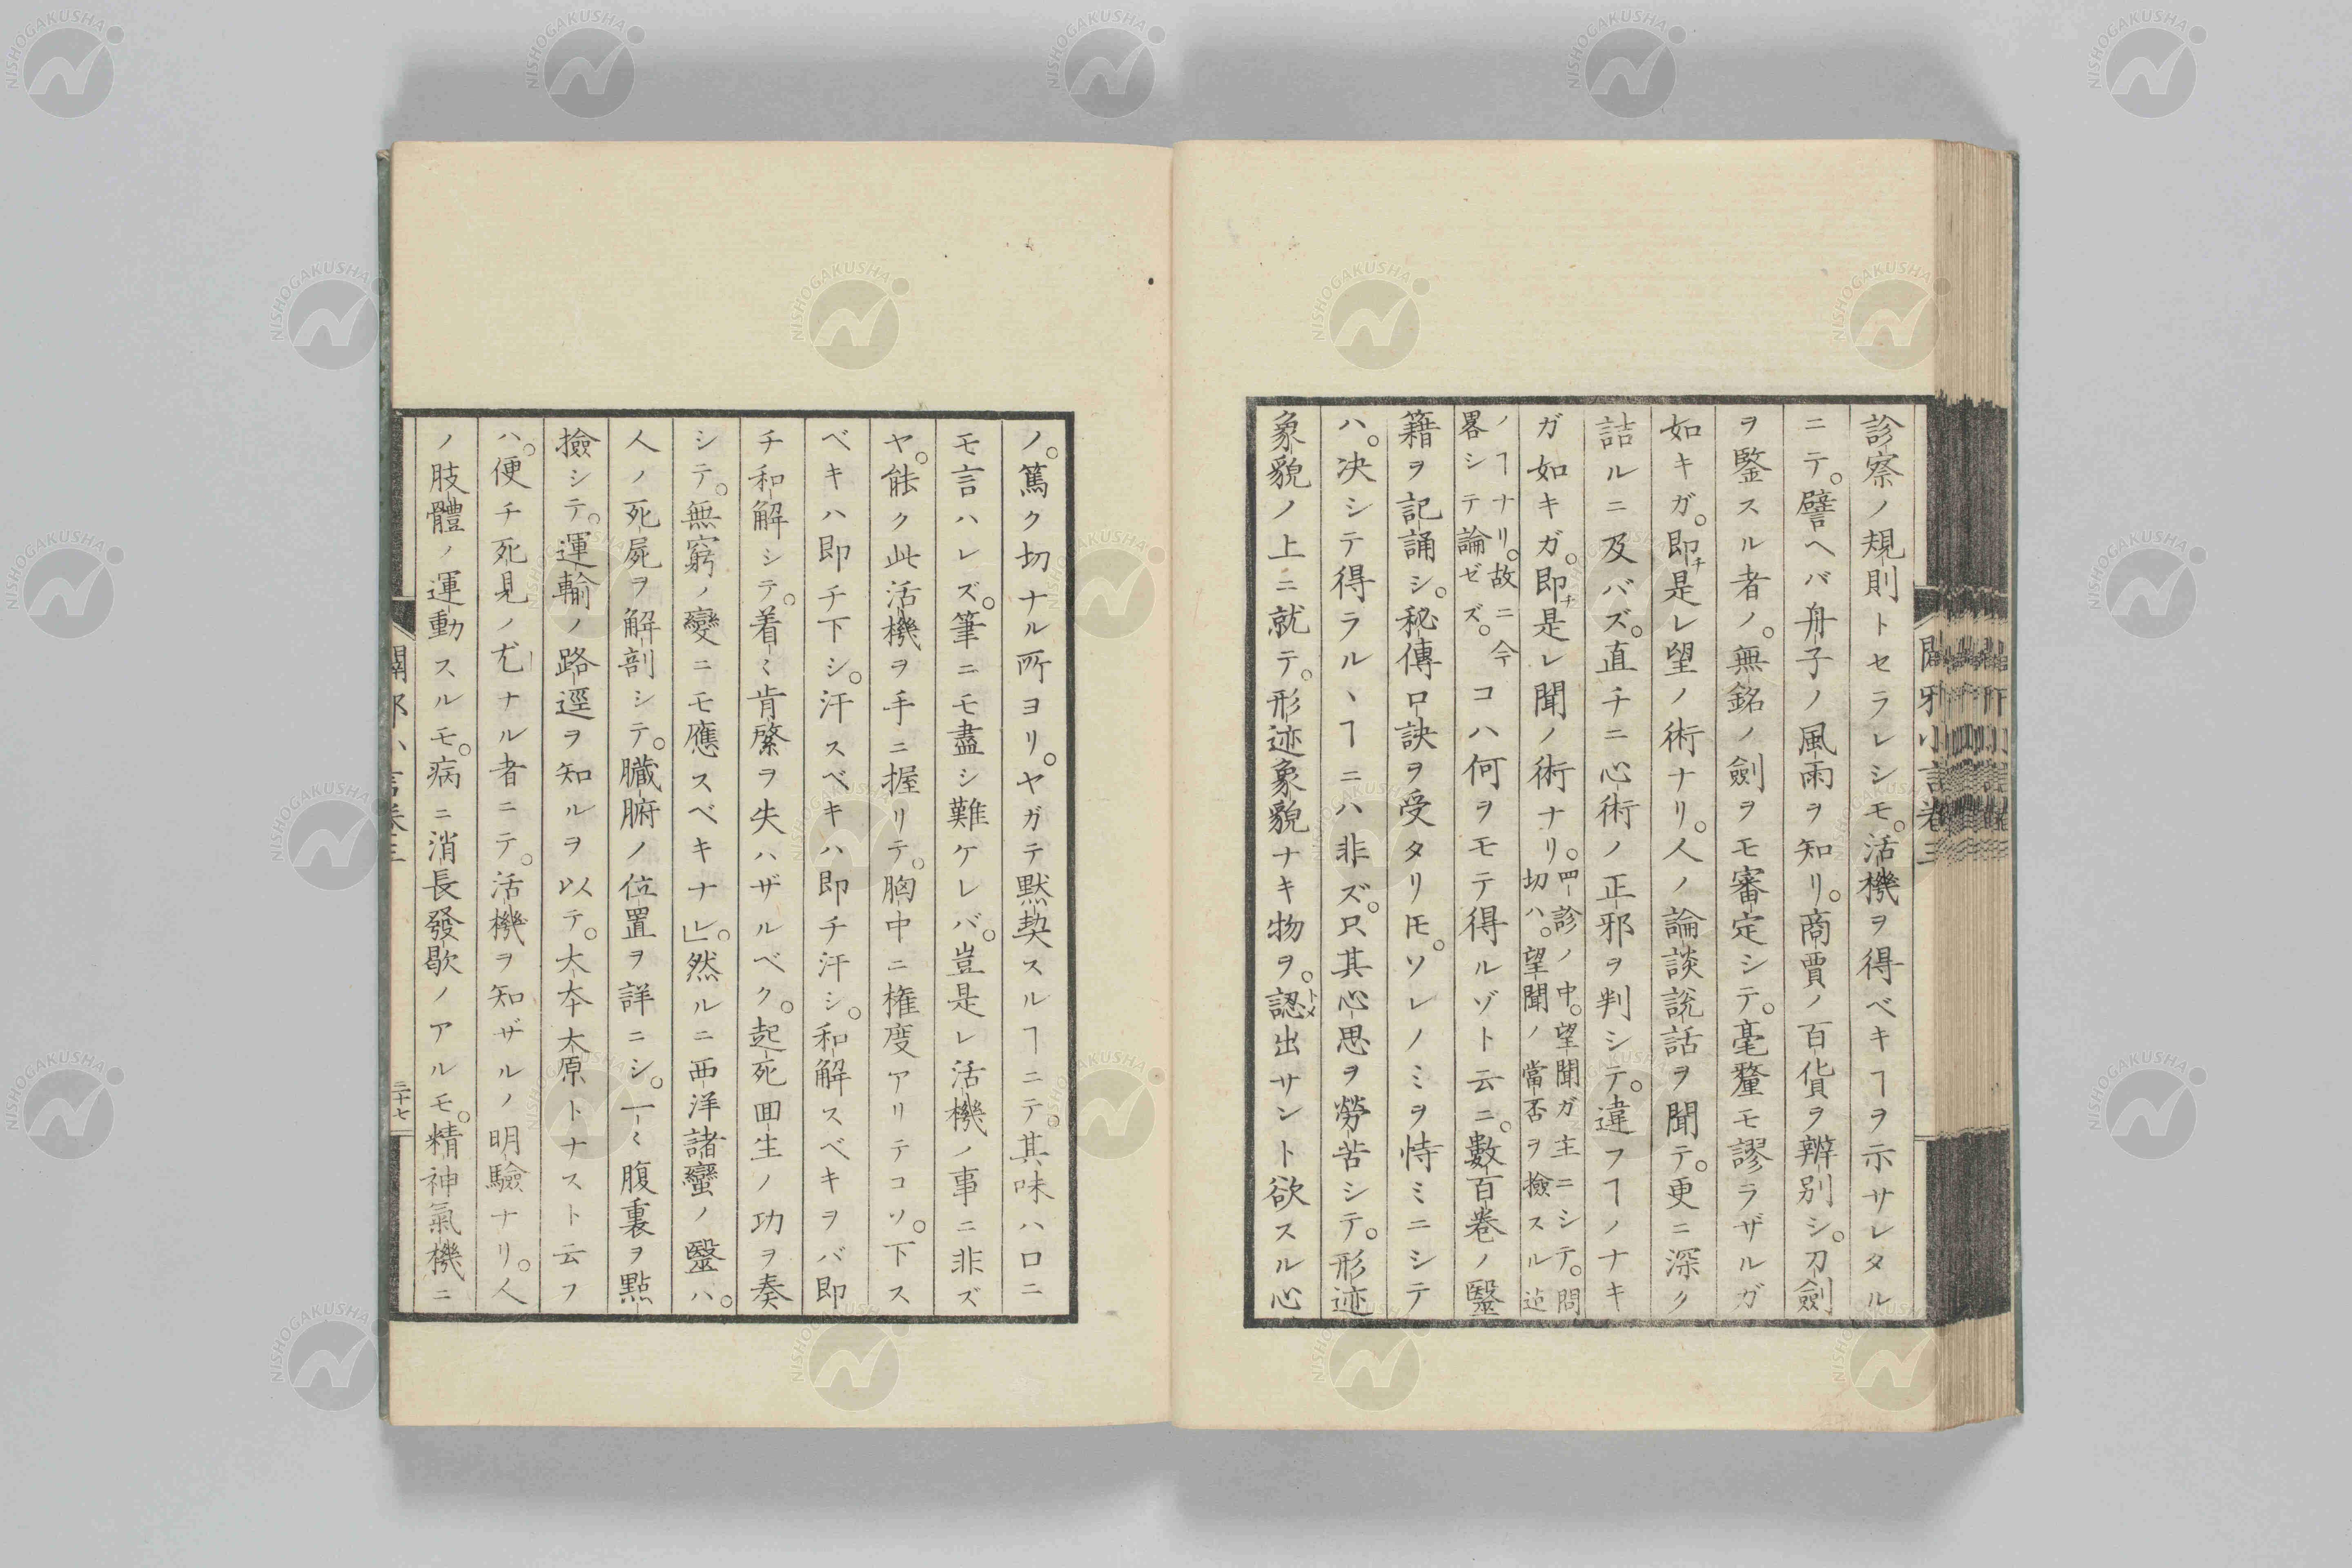 診察ノ規則トセラレシモ。活機ヲ得ベキヿヲ示サレタル
ニテ。譬ヘバ舟子ノ風雨ヲ知リ。商賈ノ百貨ヲ辨別シ。刀劍
ヲ鑒スル者ノ。無銘ノ劍ヲモ審定シテ。毫釐モ謬ラザルガ
如キガ。即チ是レ望ノ術ナリ。人ノ論談說話ヲ聞テ。更ニ深ク
詰ルニ及バズ。直チニ心術ノ正邪ヲ判シテ。違フヿノナキ
ガ如キガ。即チ是レ聞ノ術ナリ。四診ノ中。望聞ガ主ニシテ。問
切ハ。望聞ノ當否ヲ撿スル迠
ノヿナリ。故ニ今
畧シテ論ゼズ。コハ何ヲモテ得ルゾト云ニ。數百卷ノ醫
籍ヲ記誦シ。秘傳口訣ヲ受タリ𪜈。ソレノミヲ恃ミニシテ
ハ。决シテ得ラルヽヿニハ非ズ。只其心思ヲ勞苦シテ。形迹
象貌ノ上ニ就テ。形迹象貌ナキ物ヲ。認トメ出サント欲スル心
ノ。篤ク切ナル所ヨリ。ヤガテ黙契スルヿニテ。其味ハ口ニ
モ言ハレズ。筆ニモ盡シ難ケレバ。豈是レ活機ノ事ニ非ズ
ヤ。能ク此活機ヲ手ニ握リテ。胸中ニ権度アリテコソ。下ス
ベキハ即チ下シ。汗スベキハ即チ汗シ。和解スベキヲバ即
チ和解シテ。着〻肯綮ヲ失ハザルベク。起死回生ノ功ヲ奏
シテ。無窮ノ變ニモ應スベキナレ」。然ルニ西洋諸蠻ノ醫ハ。
人ノ死屍ヲ解剖シテ。臓腑ノ位置ヲ詳ニシ。一〻腹裏ヲ點
撿シテ。運輸ノ路逕ヲ知ルヲ以テ。大本大原トナスト云フ
ハ。便チ死見ノ尤ナル者ニテ。活機ヲ知ザルノ明驗ナリ。人
ノ肢體ノ運動スルモ。病ニ消長發歇ノアルモ。精神氣機ニ
二十七